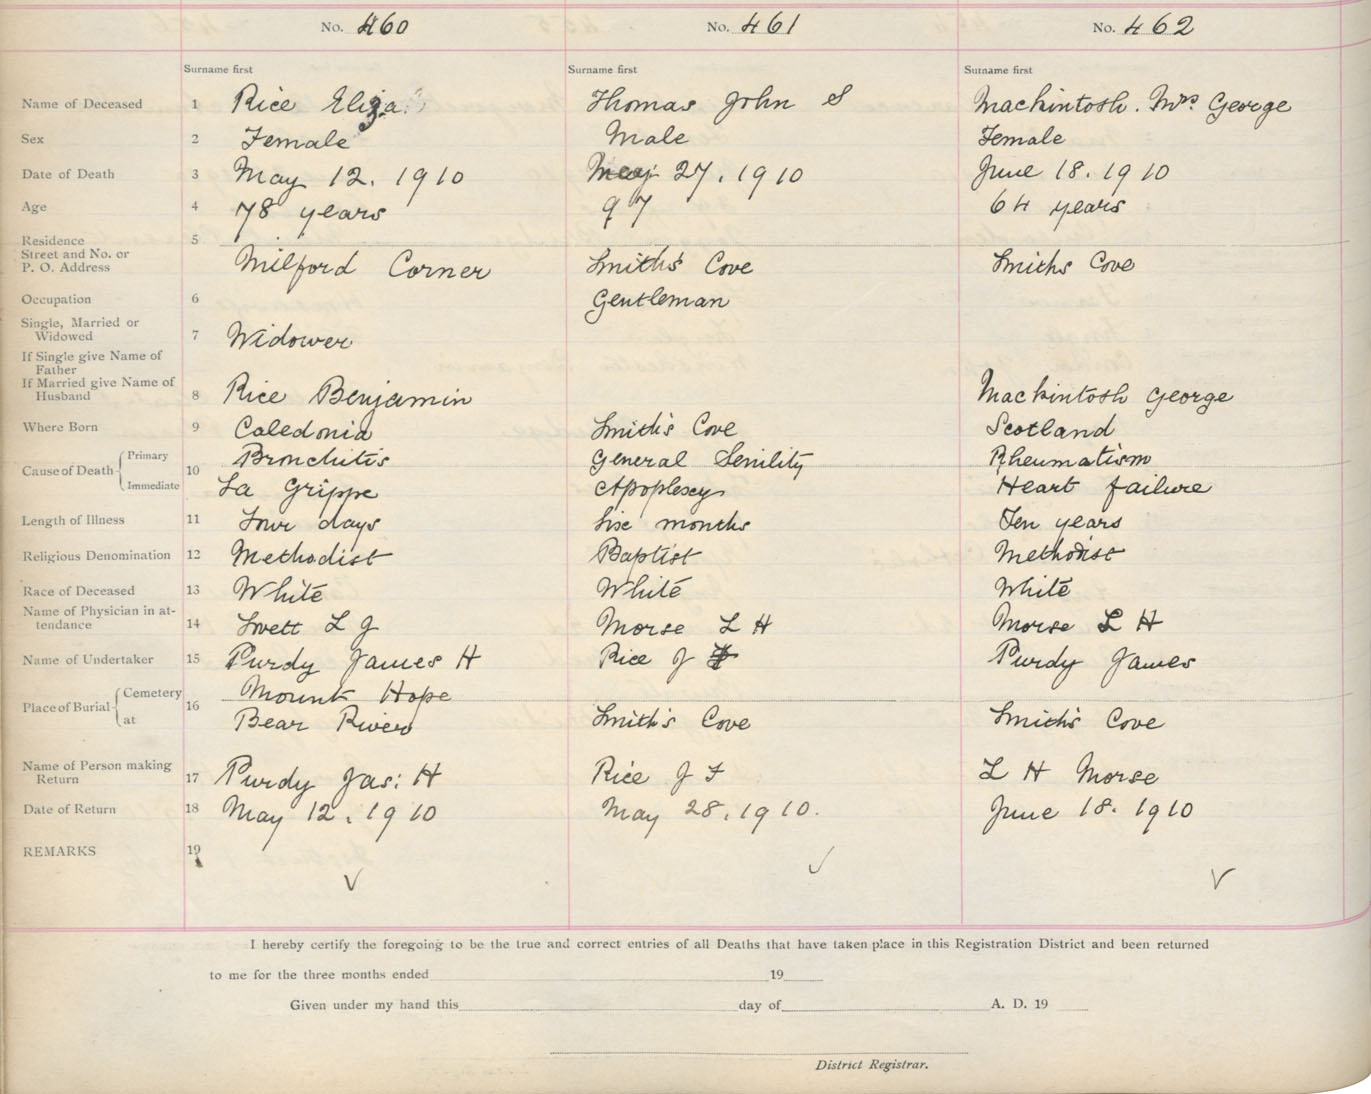 No. 460 No. 461 No. 462
Surname first Surname first Surname first
Name of Deceased 1 Rice Eliza Thomas John S Mackintosh. Mrs George
Sex 2 Female Male Female
Date of Death 3 May 12. 1910 May 27. 1910 June 18. 1910
Age 4 78 years 97 64 years
Residence 5
Street and No. or
P. O. Address Milford Corner Smith's Cove Smiths Cove
Occupation 6 Gentleman
Single, Married or
Widowed 7 Widower
If Single give Name of
Father
If Married give Name of
Husband 8 Rice Benjamin Mackintosh George
Where Born 9 Caledonia Smith's Cove Scotland
Cause of Death 10 Primary Bronchitis General Senility Rheumatism
Immediate La Grippe Apoplexy Heart failure
Length of Illness 11 Four days Six months Ten years
Religious Denomination 12 Methodist Baptist Methodist
Race of Deceased 13 White White White
Name of Physician in at-
tendance 14 Lovett L J Morse L H Morse L H
Name of Undertaker 15 Purdy James H Rice J F Purdy James
Place of Burial 16 Cemetery Mount Hope
at Bear River Smith's Cove Smith's Cove
Name of Person making
Return 17 Purdy Jas: H Rice J F L H Morse
Date of Return 18 May 12. 1910 May 28. 1910. June 18. 1910
REMARKS 19
I hereby certify the foregoing to be the true and correct entries of all Deaths that have taken place in this Registration District and been returned
to me for the three months ended 19
Given under my hand this day of A. D. 19
District Registrar.